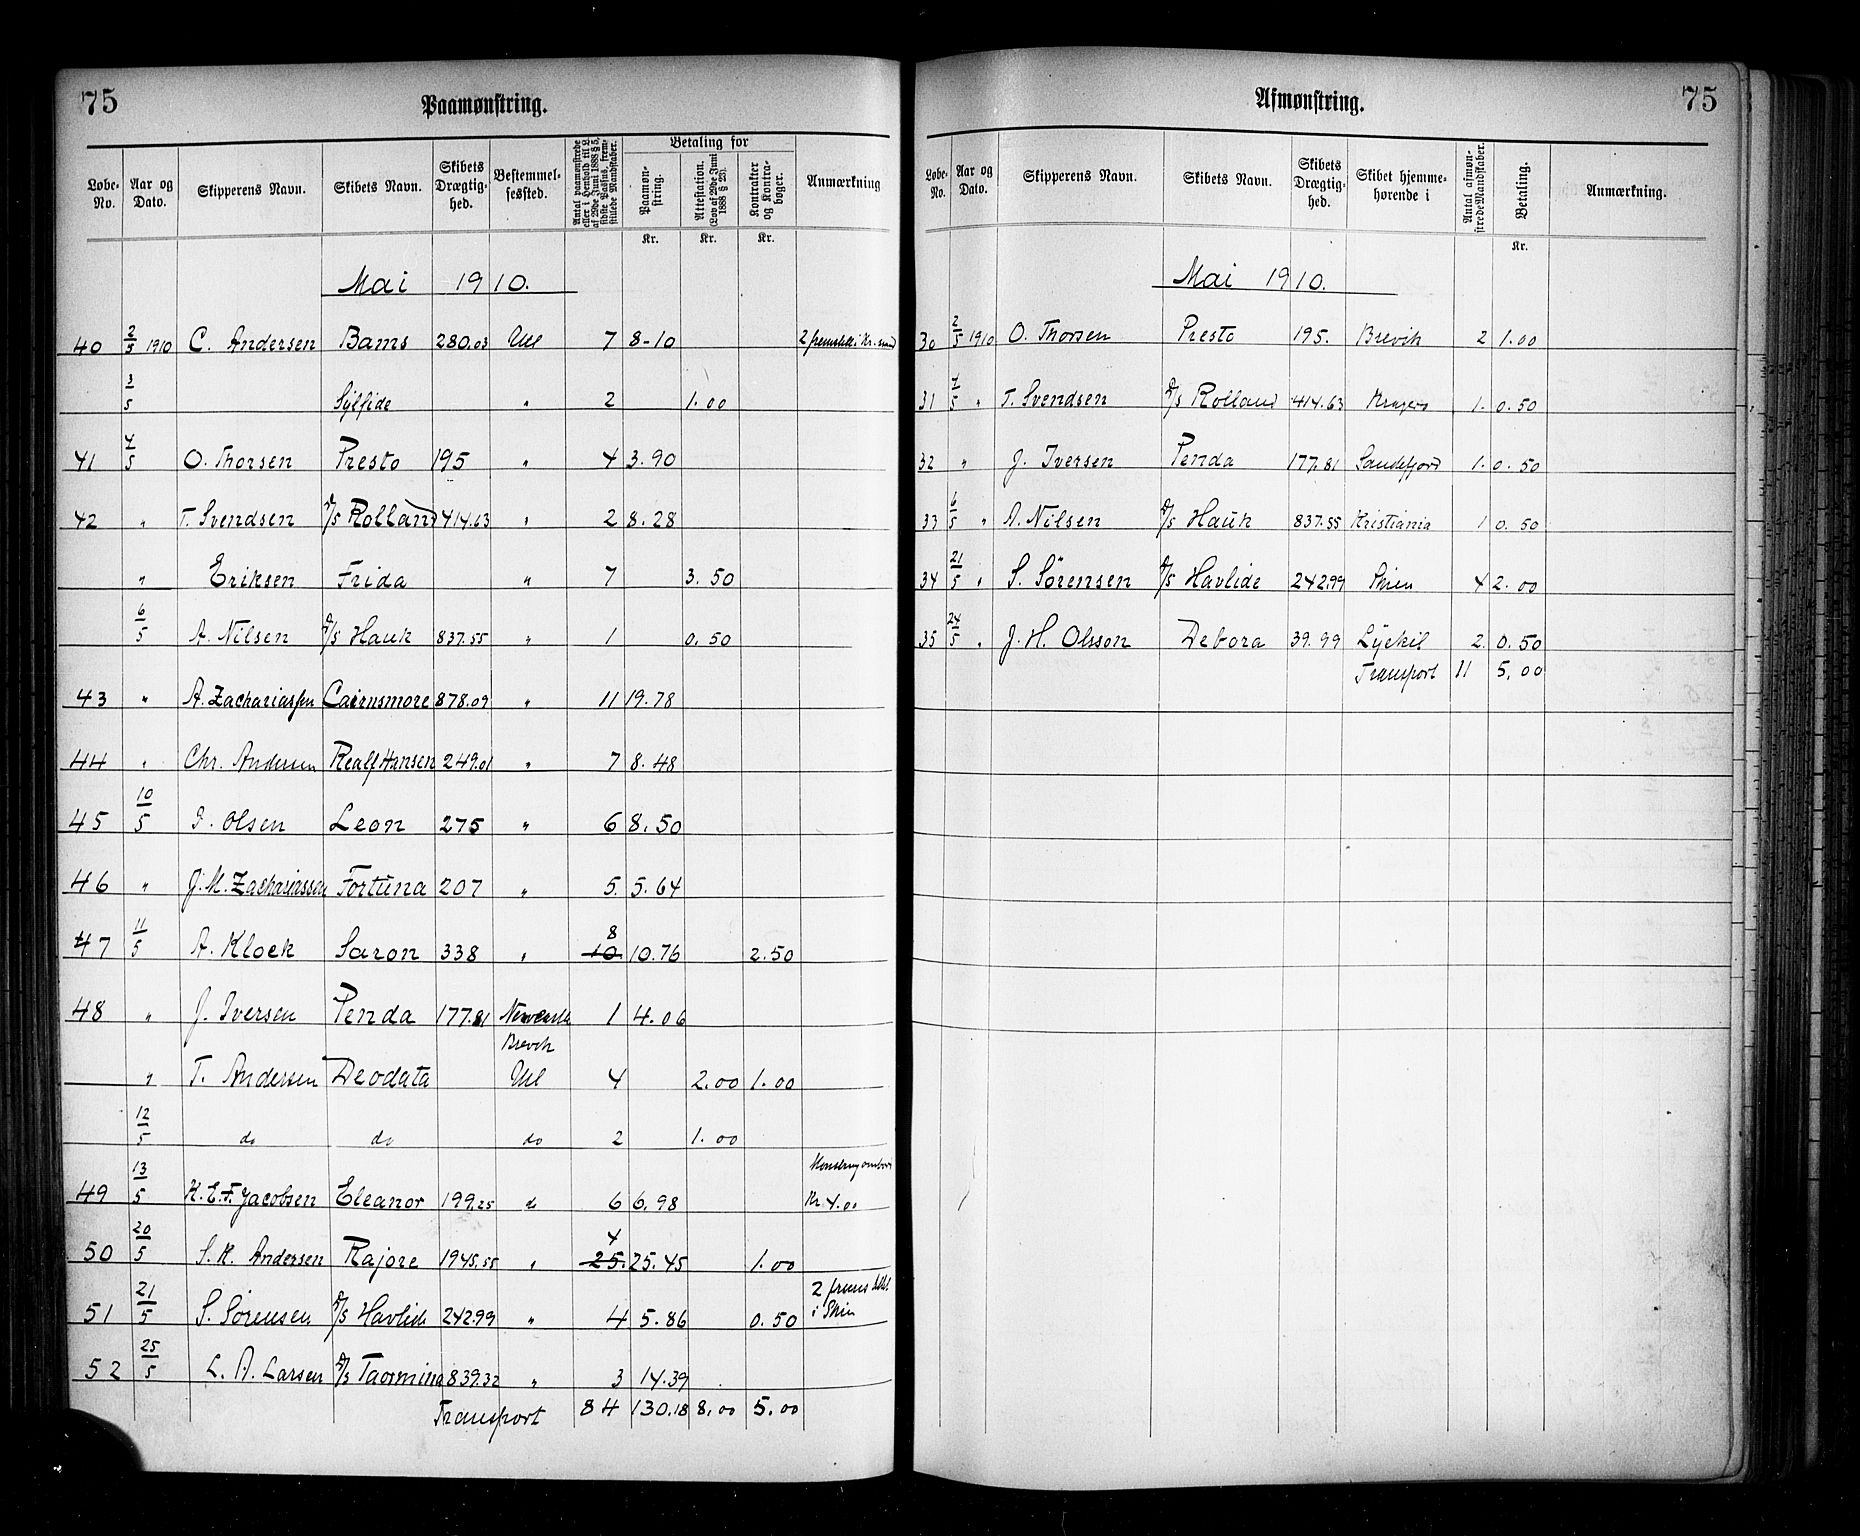 75
Paamønstring.
Løbe-No.
Aar og Dato.
Skipperens Navn.
Skibets Navn.
Skibets Drægtig-hed.
Bestemmel-sessted.
Antal paamønstrede eller i Henhold til L. af 29de Juni 1888 § 5, sidste Passus, frem-stillede Mandskaber.
Betaling for
Paamøn-string.
Attestation. (Lov af 29de Juni 1888 § 23).
Kontrakter og Kontra-bøger.
Anmærkning
Kr. Kr. Kr.
Mai 1910.
40 2/5 1910 C. Andersen Bams 280.03 Udl 7 8-10
3/5 Sylfide " 2 1.00
41 4/5 O. Thorsen Presto 195 " 4 3.90
42 " T. Svendsen D/S Rolland 414.63 " 2 8.28
" Eriksen Frida " 7 3.50
6/5 A. Nilsen D/S Hauk 837.55 " 1 0.50
43 " A. Zachariassen Cairnsmore 878.09 " 11 19.78
44 " Chr. Andersen Realf Hansen 249.01 " 7 8.48
45 10/5 Olsen Leon 275 " 6 8.50
46 " J. M. Zachariassen Fortuna 207 " 5. 5.64
47 11/5 A. Klock Saron 338 " 8 10. 10.76 2.50
48 " J. Iversen Penda 177.81 Newcastle 1 4.06
Brevik
" T. Andersen Deodata Udl 4 2.00 1.00
12/5 do do do 2 1.00
49 13/5 K. E. F. Jacobsen Eleanor 199.25 do 6 6.98 Kr 4.00
50 20/5 S. K. Andersen Rajore 1945.55 " 4 25. 25.45 1.00
51 21/5 S. Sørensen D/S Havlide 242.99 " 4 5.86 0.50 2 fremstillet i Skien
52 25/5 L. A. Larsen D/S Taormina 839.32 " 3 14.39
Transport 84 130.18 8.00 5.00
Afmønstring.
75
Løbe-No.
Aar og Dato.
Skipperens Navn.
Skibets Navn.
Skibets Drægtig-hed.
Skibet hjemme-hørende i
Antal afmøn-strede Mandskaber.
Betaling.
Anmærkning.
Kr.
Mai 1910.
30 2/5 1910 O. Thorsen Presto 195. Brevik 2 1.00
31 4/5 " T. Svendsen D/S Rolland 414.63 Kragerø 1. 0.50
32 " J. Iversen Penda 177.81 Sandefjord 1. 0.50
33 6/5 " A. Nilsen D/S Hauk 837.55 Kristiania 1 0.50
34 21/5 " S. Sörensen D/S Havlide 242.99 Skien 4 2.00
35 24/5 " J. H. Olsson Debora 39.99 Lysekil 2. 0.50
Transport 11 5,00